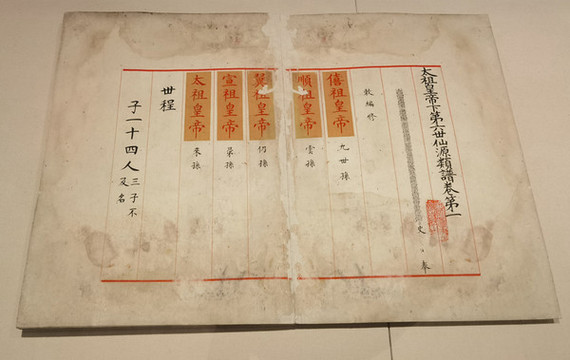 太祖皇帝下第六世仙源類譜卷第一
史 奉
敕編修
僖祖皇帝 九世孫
順祖皇帝 雲孫
翼祖皇帝 仍孫
宣祖皇帝 晜孫
太祖皇帝 來孫
世程
子一十四人 三子不
及名